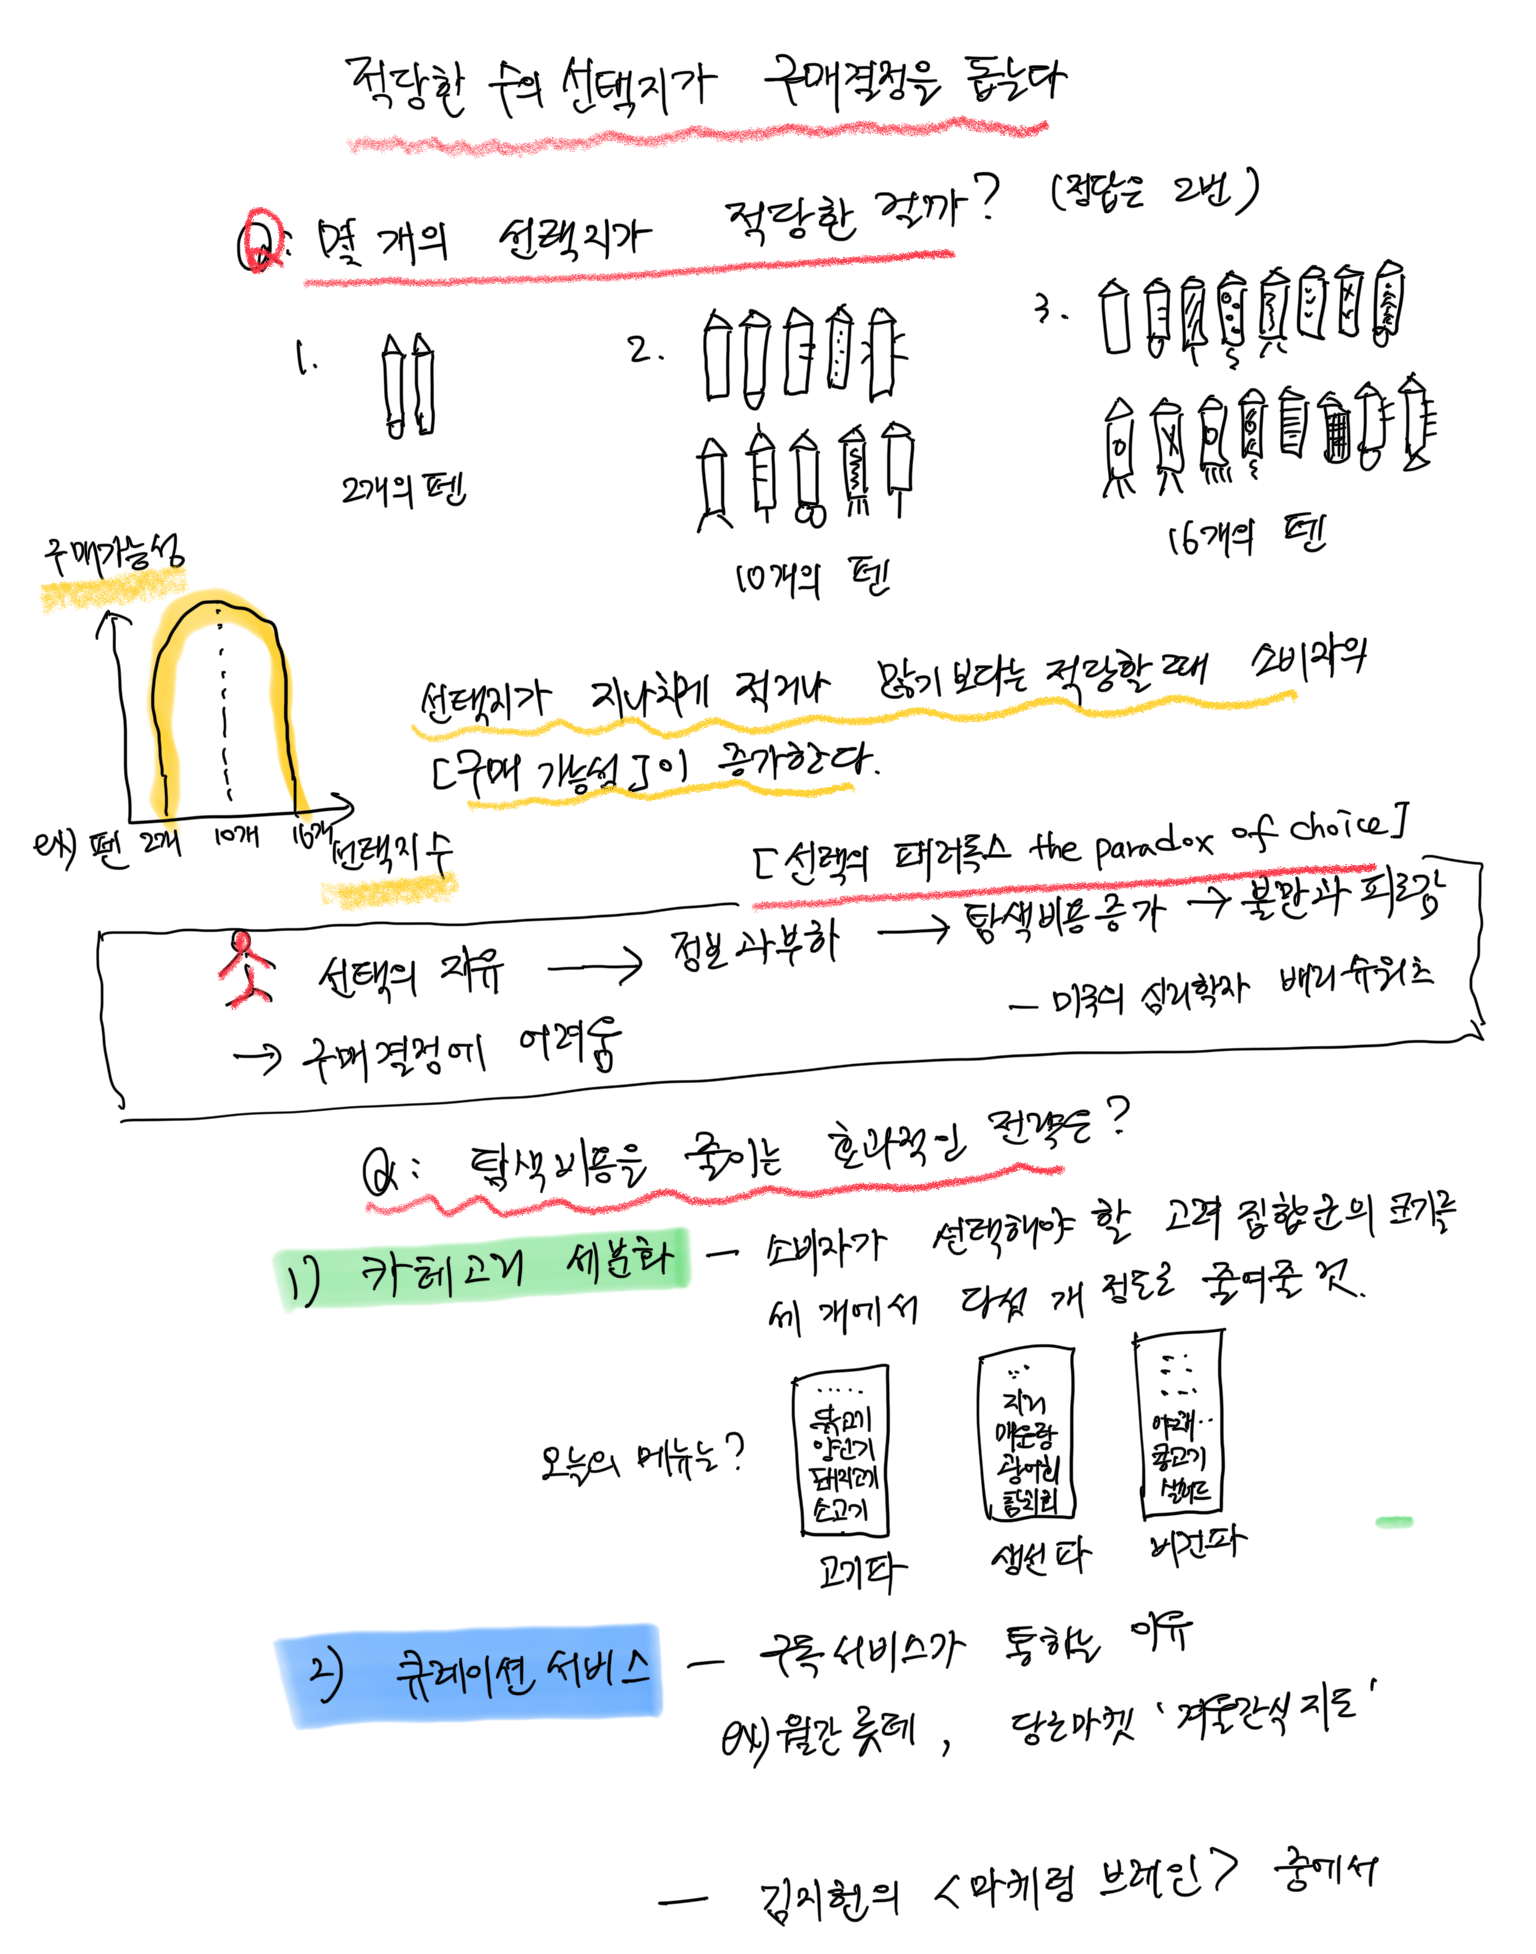 적당한 수의 선택지가 구매결정을 돕는다
Q: 몇 개의 선택지가 적당한 걸까? (정답은 2번)
1.
2.
3.
2개의 펜
10개의 펜
16개의 펜
구매가능성
ex) 펜 2개 10개 16개
선택지 수
선택지가 지나치게 적거나 많기 보다는 적당할 때 소비자의
[구매 가능성]이 증가한다.
[선택의 패러독스 the paradox of choice]
선택의 자유 → 정보 과부하 → 탐색비용 증가 → 불만과 피로감
→ 구매 결정에 어려움
- 미국의 심리학자 배리 슈워츠
Q: 탐색비용을 줄이는 효과적인 전략은?
1) 카테고리 세분화 - 소비자가 선택해야 할 고려 집합군의 크기를
세 개에서 다섯 개 정도로 줄여줄 것.
오늘의 메뉴는?
닭고기
양고기
돼지고기
소고기
고기파
지리
매운탕
광어회
참치회
생선파
야채..
콩고기
샐러드
비건파
2) 큐레이션 서비스 - 구독서비스가 통하는 이유
ex) 월간 롯데, 당근마켓 '겨울간식 지도'
- 김지헌의 <마케팅 브레인> 중에서